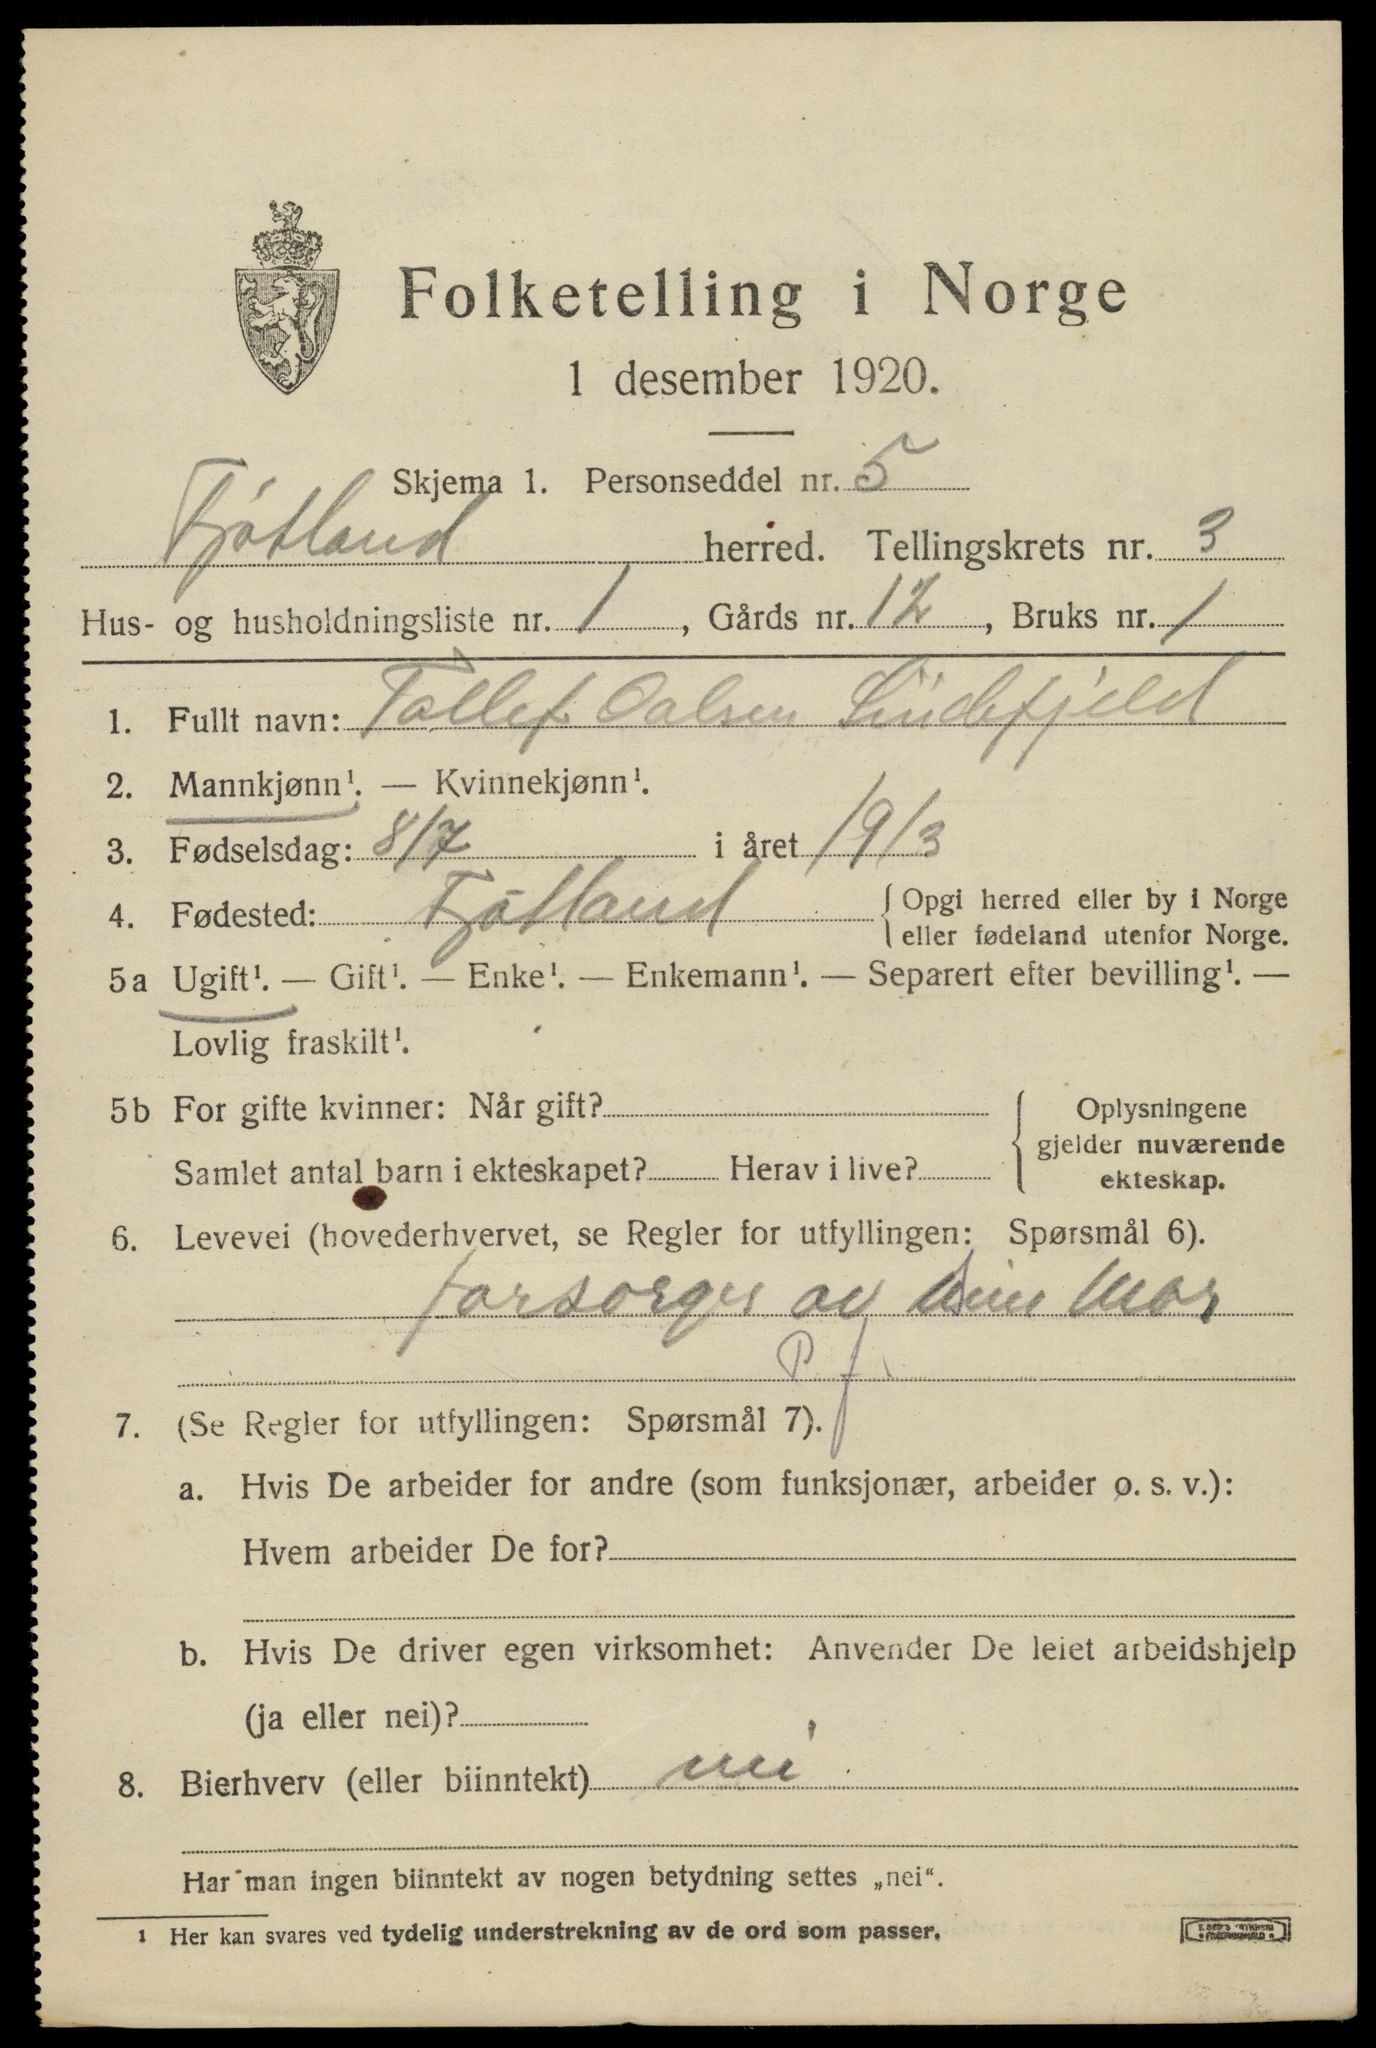 Folketelling i Norge
1 desember 1920.
Skjema 1. Personseddel nr. 5
Fjotland herred. Tellingskrets nr. 3
Hus- og husholdningsliste nr. 1, Gårds nr. 12, Bruks nr. 1
1. Fullt navn: Tollef Oalsen Sindefjeld
2. Mannkjønn¹. — Kvinnekjønn¹.
3. Fødselsdag: 8/7 i året 1913
4. Fødested: Fjotland { Opgi herred eller by i Norge
eller fødeland utenfor Norge.
5a Ugift¹. — Gift¹. — Enke¹. — Enkemann¹. — Separert efter bevilling¹. —
Lovlig fraskilt¹.
5b For gifte kvinner: Når gift?
Samlet antal barn i ekteskapet? Herav i live?
{ Oplysningene
gjelder nuværende
ekteskap.
6. Levevei (hovederhvervet, se Regler for utfyllingen: Spørsmål 6).
forsorges av sin Mor
P. f.
7. (Se Regler for utfyllingen: Spørsmål 7).
a. Hvis De arbeider for andre (som funksjonær, arbeider o. s. v.):
Hvem arbeider De for?
b. Hvis De driver egen virksomhet: Anvender De leiet arbeidshjelp
(ja eller nei)?
8. Bierhverv (eller biinntekt) nei
Har man ingen biinntekt av nogen betydning settes „nei“.
¹ Her kan svares ved tydelig understrekning av de ord som passer.